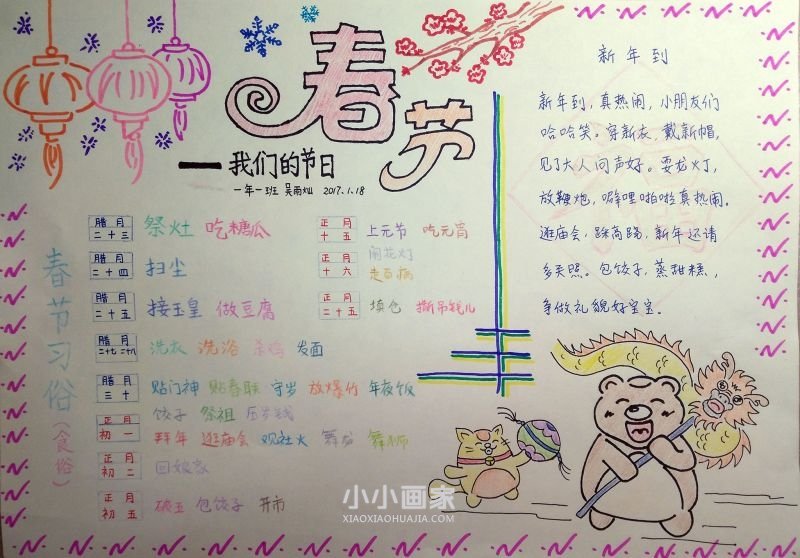 春节
我们的节日
一年一班 吴雨灿 2017.1.18
春节习俗(食俗)
腊月二十三 祭灶 吃糖瓜
腊月二十四 扫尘
腊月二十五 接玉皇 做豆腐
腊月二十七 二十八 洗衣 洗浴 杀鸡 发面
腊月三十 贴门神 贴春联 守岁 放爆竹 年夜饭
饺子 祭祖 压岁钱
正月初一 拜年 逛庙会 观社火 舞龙 舞狮
正月初二 回娘家
正月初五 破五 包饺子 开市
正月十五 上元节 吃元宵
闹花灯
正月十六 走百病
正月二十五 填仓 撕吊钱儿
新年到
新年到,真热闹,小朋友们
哈哈笑。穿新衣,戴新帽,
见了大人问声好。耍龙灯,
放鞭炮,噼哩啪啦真热闹。
逛庙会,踩高跷,新年还请
多关照。包饺子,蒸甜糕,
争做礼貌好宝宝。
小小画家
XIAOXIAOHUAJIA.COM